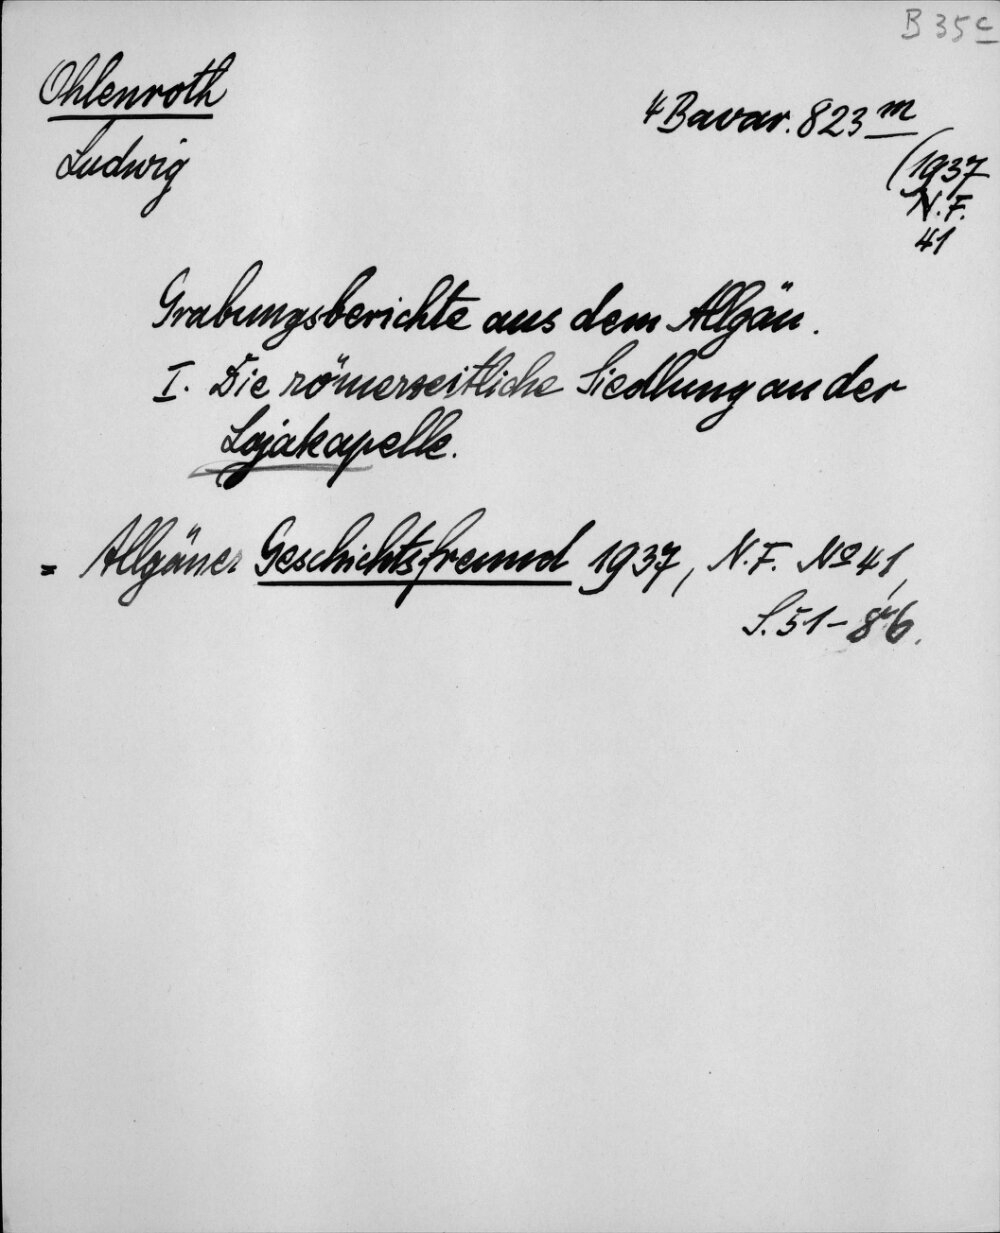 B 35 c
Ohlenroth
Ludwig
4 Bavar. 823 m
(1937
N. F.
41
Grabungsberichte aus dem Allgäu.
I. Die römerzeitliche Siedlung an der
Lojakapelle.
= Allgäuer Geschichtsfreund 1937, N. F. No 41,
S. 51-86.